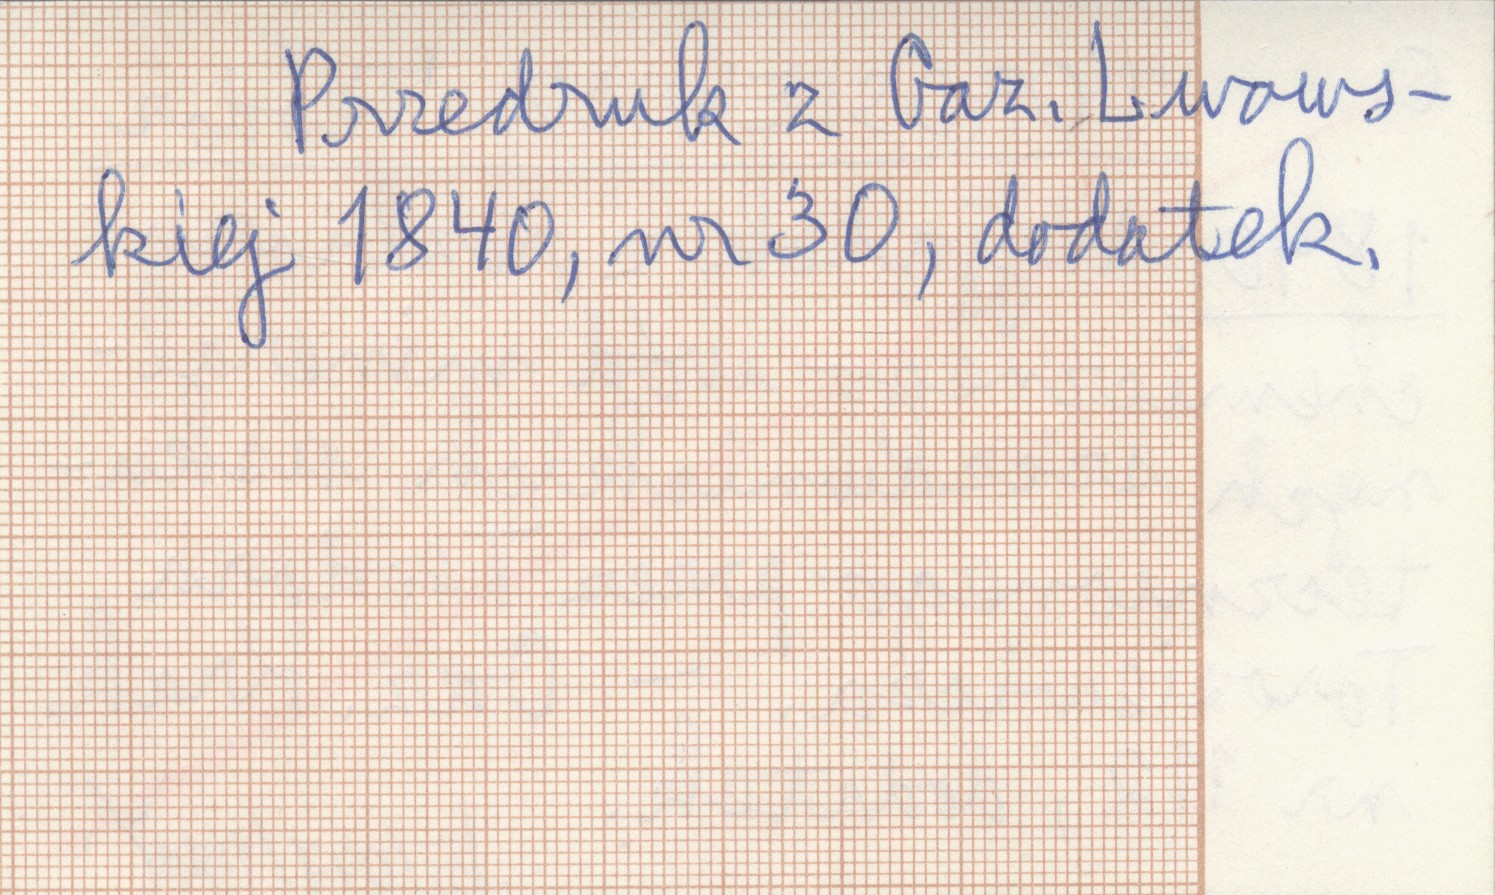 Przedruk z Gaz. Lwows-
kiej 1840, nr 30, dodatek.